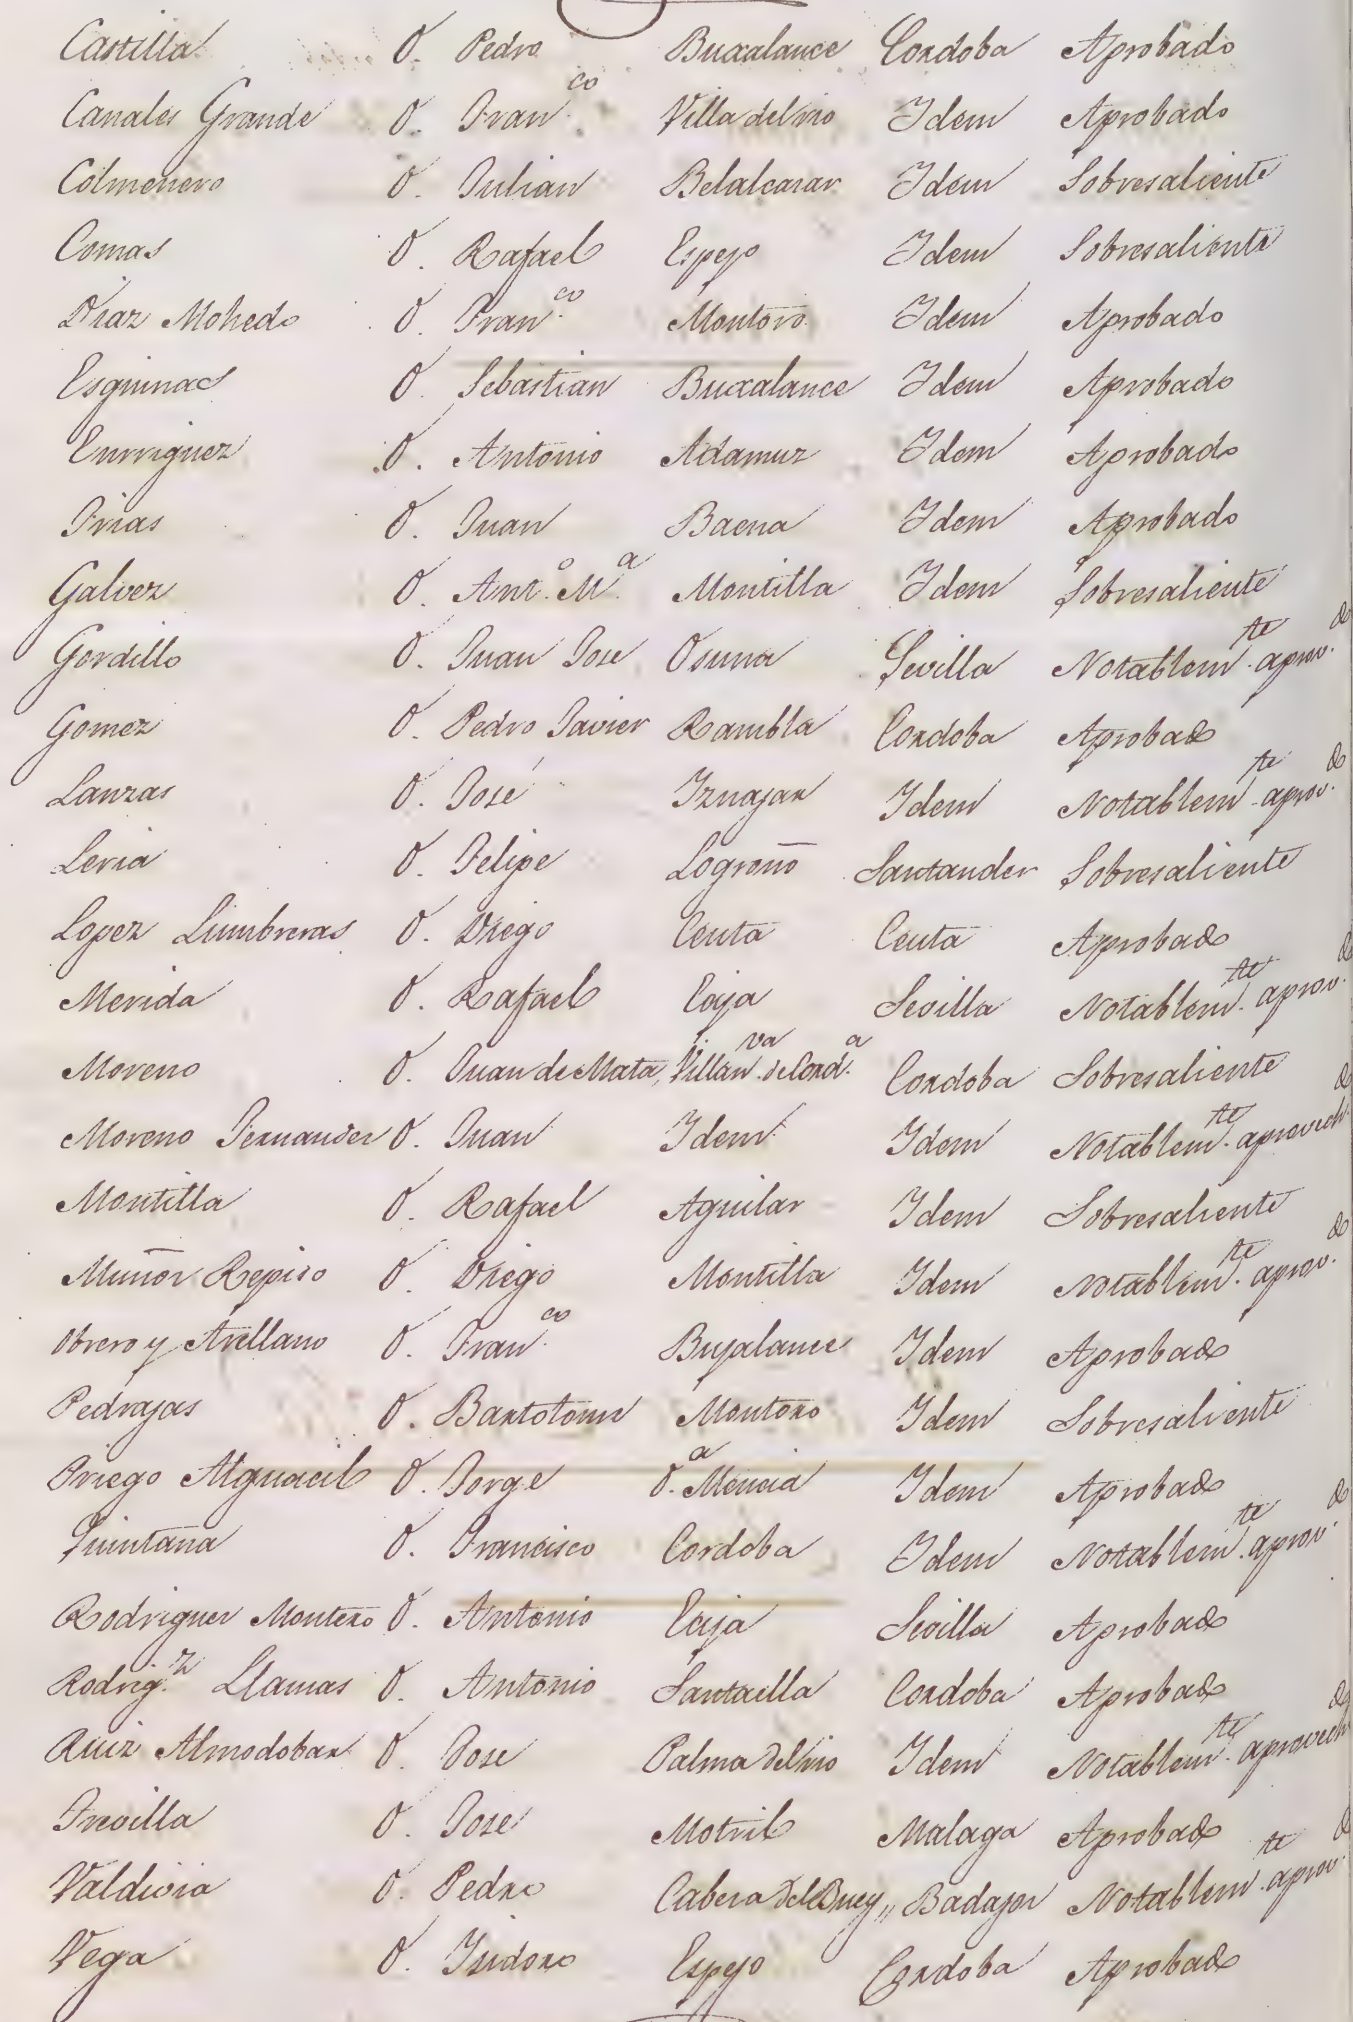 Castilla D. Pedro Buxalance Cordoba Aprobado
Canales Grande D. Fran.co Villa del rio Idem Aprobado
Colmenero D. Julian Belalcazar Idem Sobresaliente
Comas D. Rafael Espejo Idem Sobresaliente
Diaz Mohedo D. Fran.co Montoro Idem Aprobado
Esquinas D. Sebastian Buxalance Idem Aprobado
Enrriquez D. Antonio Adamuz Idem Aprobado
Frias D. Juan Baena Idem Aprobado
Galvez D. Ant.o M.a Montilla Idem Sobresaliente
Gordillo D. Juan Jose Osuna Sevilla Notablem.te aprov.do
Gomez D. Pedro Javier Rambla Cordoba Aprobado
Lanzas D. José Iznajar Idem Notablem.te aprov.do
Leria D. Felipe Logroño Santander Sobresaliente
Lopez Lumbreras D. Diego Ceuta Ceuta Aprobado
Merida D. Rafael Ecija Sevilla Notablem.te aprov.do
Moreno D. Juan de Mata, Villan.va de Cord.a Cordoba Sobresaliente
Moreno Fernandez D. Juan Idem Idem Notablem.te aprovech.do
Montilla D. Rafael Aguilar Idem Sobresaliente
Muñoz Repiso D. Diego Montilla Idem Notablem.te aprov.do
Obrero y Arellano D. Fran.co Bujalance Idem Aprobado
Pedrajas D. Bartolome Montoro Idem Sobresaliente
Priego Alguacil D. Jorge D.a Mencia Idem Aprobado
Quintana D. Francisco Cordoba Idem Notablem.te aprov.do
Rodriguez Montero D. Antonio Ecija Sevilla Aprobado
Rodrig.z Llamas D. Antonio Santaella Cordoba Aprobado
Ruiz Almodobar D. Jose Palma del rio Idem Notablem.te aprovech.do
Trevilla D. Jose Motril Malaga Aprobado
Valdivia D. Pedro Cabeza del Buey,, Badajoz Notablem.te aprov.do
Vega D. Isidoro Espejo Cordoba Aprobado